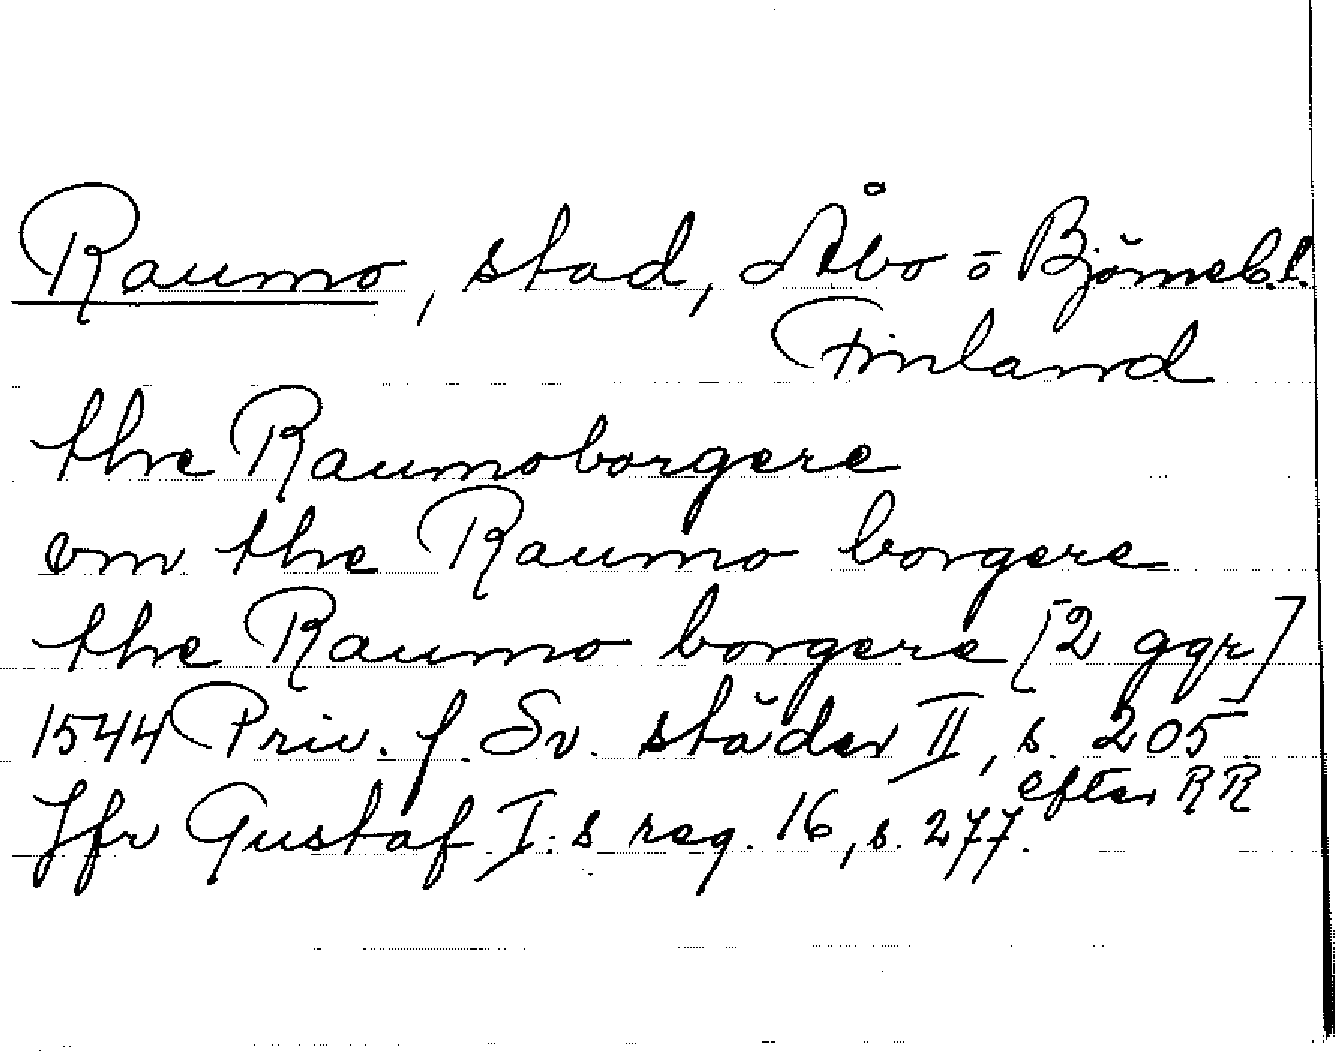 Raumo, stad, Åbo o Björneb.l.
Finland
the Raumoborgere
om the Raumo borgere
the Raumo borgere [2 ggr]
1544 Priv. f. Sv. städer II, s. 205.
efter RR
Jfr Gustaf I:s reg. 16, s. 277.